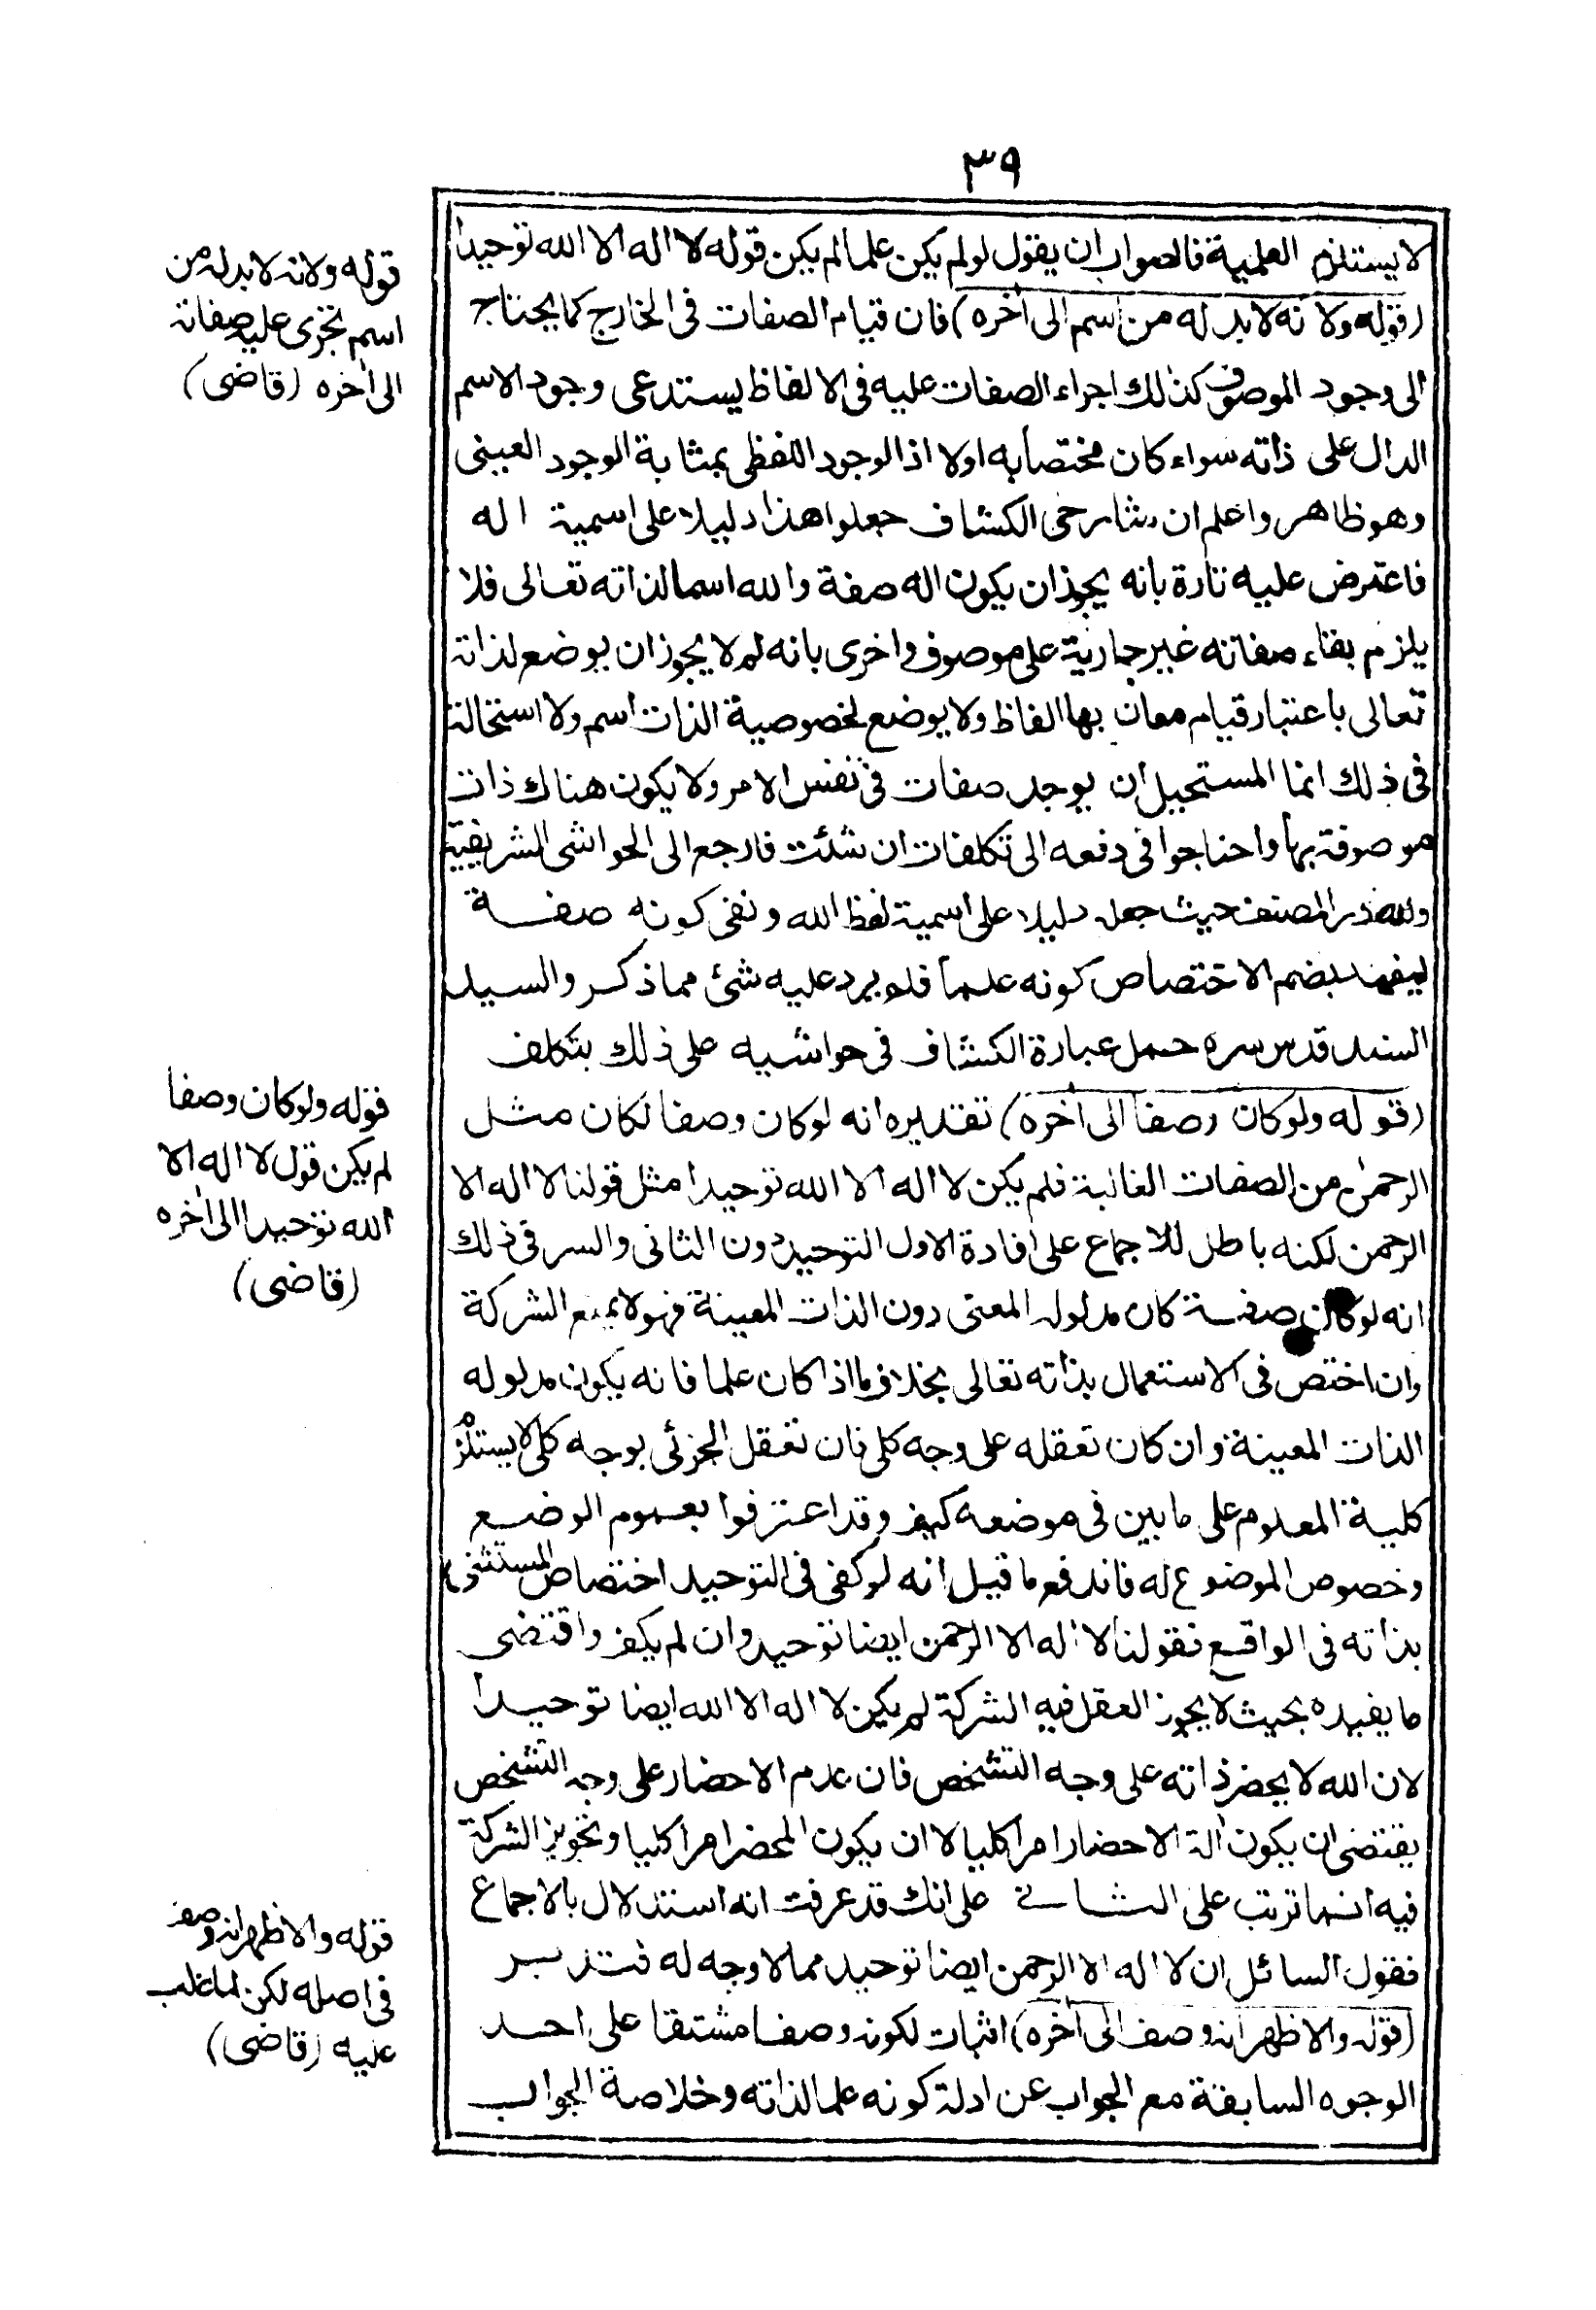 ٣٩
لا يستلزم العلمية فالصواب ان يقول لو لم يكن علما لم يكن قوله لا اله الا الله توحيدا
(قوله ولانه لا بد له من اسم الى اخره) فان قيام الصفات فى الخارج كما يحتاج
الى وجود الموصوف كذلك اجراء الصفات عليه فى الالفاظ يستدعى وجود الاسم
الدال على ذاته سواء كان مختصا به اولا اذ الوجود اللفظى بمثابة الوجود العينى
وهو ظاهر واعلم ان شارحى الكشاف جعلوا هذا دليلا على اسمية اله
فاعترض عليه تارة بانه يجوز ان يكون اله صفة والله اسما لذاته تعالى فلا
يلزم بقاء صفاته غير جارية على موصوف واخرى بانه لم لا يجوز ان يوضع لذاته
تعالى باعتبار قيام معان بها الفاظ ولا يوضع لخصوصية الذات اسم ولا استحالة
فى ذلك انما المستحيل ان يوجد صفات فى نفس الامر ولا يكون هناك ذات
موصوفة بها واحتاجوا فى دفعه الى تكلفات ان شئت فارجع الى الحواشى الشريفية
ولله در المصنف حيث جعله دليلا على اسمية لفظ الله ونفى كونه صفة
ليفيد بضم الاختصاص كونه علما فلا يرد عليه شئ مما ذكر والسيد
السند قدس سره حمل عبارة الكشاف فى حواشيه على ذلك بتكلف
(قوله ولو كان وصفا الى اخره) تقديره انه لو كان وصفا لكان مثل
الرحمن من الصفات الغالبة فلم يكن لا اله الا الله توحيدا مثل قولنا لا اله الا
الرحمن لكنه باطل للاجماع على افادة الاول التوحيد دون الثانى والسر فى ذلك
انه لو كان صفة كان مدلوله المعنى دون الذات المعينة فهو لا يمنع الشركة
وان اختص فى الاستعمال بذاته تعالى بخلاف ما اذا كان علما فانه يكون مدلوله
الذات المعينة وان كان تعقله على وجه كلى فان تعقل الجزئى بوجه كلى لا يستلزم
كلية المعلوم على ما بين فى موضعه كيف وقد اعترفوا بعموم الوضع
وخصوص الموضوع له فاندفع ما قيل انه لو كفى فى التوحيد اختصاص المستثنى
بذاته فى الواقع فقولنا لا اله الا الرحمن ايضا توحيد وان لم يكف واقتضى
ما يفيده بحيث لا يجوز العقل فيه الشركة لم يكن لا اله الا الله ايضا توحيدا
لان الله لا يحضر ذاته على وجه التشخص فان عدم الاحضار على وجه التشخص
يقتضى ان يكون الة الاحضار امرا كليا لا ان يكون المحضر امرا كليا وتجويز الشركة
فيه انما ترتب على الثانى على انك قد عرفت انه استدلال بالاجماع
فقول السائل ان لا اله الا الرحمن ايضا توحيد مما لا وجه له فتدبر
(قوله والاظهر انه وصف الى اخره) اثبات لكونه وصفا مشتقا على احد
الوجوه السابقة مع الجواب عن ادلة كونه علما لذاته وخلاصة الجواب
قوله ولانه لا بد له من
اسم تجرى عليه صفاته
الى اخره (قاضى)
قوله ولو كان وصفا
لم يكن قول لا اله الا
الله توحيدا الى اخره
(قاضى)
قوله والاظهر انه وصف
فى اصله لكن لما غلب
عليه (قاضى)